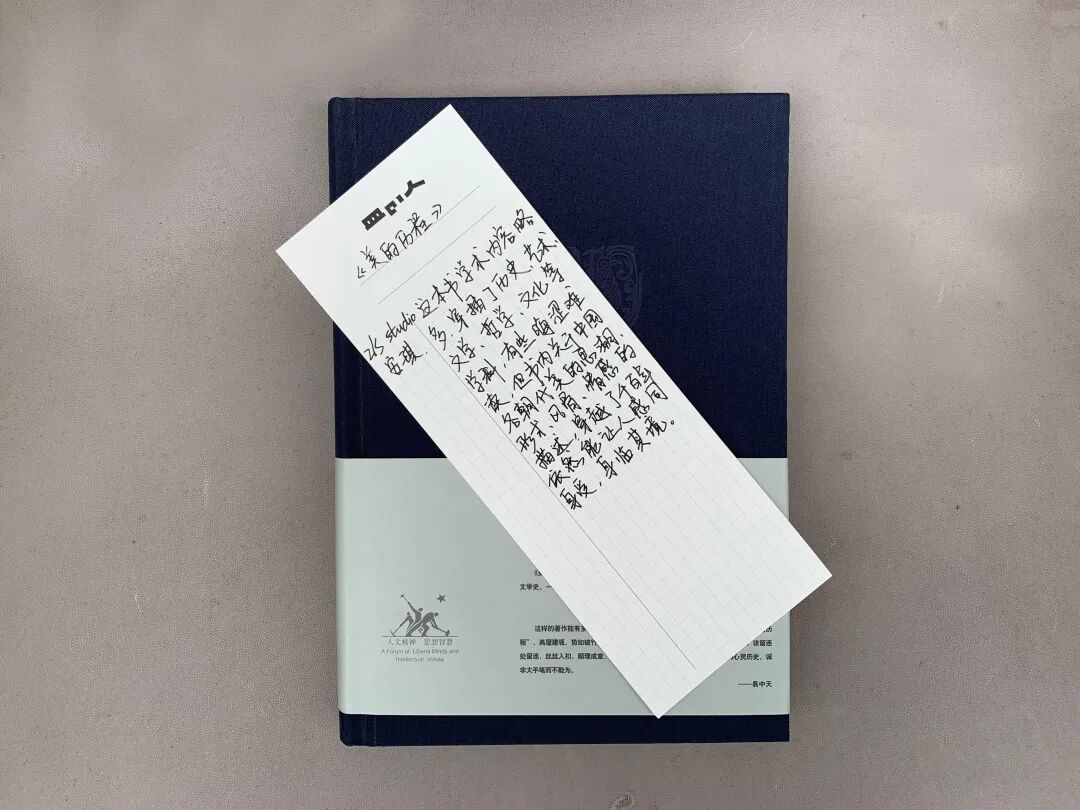 《美的历程》
studio
安琪.
这本书学术内容略
多,穿插了历史、艺术、
文学、哲学、文化等
学科,有些晦涩难
读,但书内关于中国
各朝代美的思潮、
形式、品、情感的
描述,穿越了千百年
依然能让人感同
身受,身临其境。
文學史,一
这样的著作能有多 历
程”,高屋建瓴,势如破竹 该留连
处留连,丝丝入扣,顺理成章, 心灵历史,诚
非大手笔而不能为。
——易中天
人文精神 思想智慧
A Forum of Liberal Minds and
Intellectual Voices